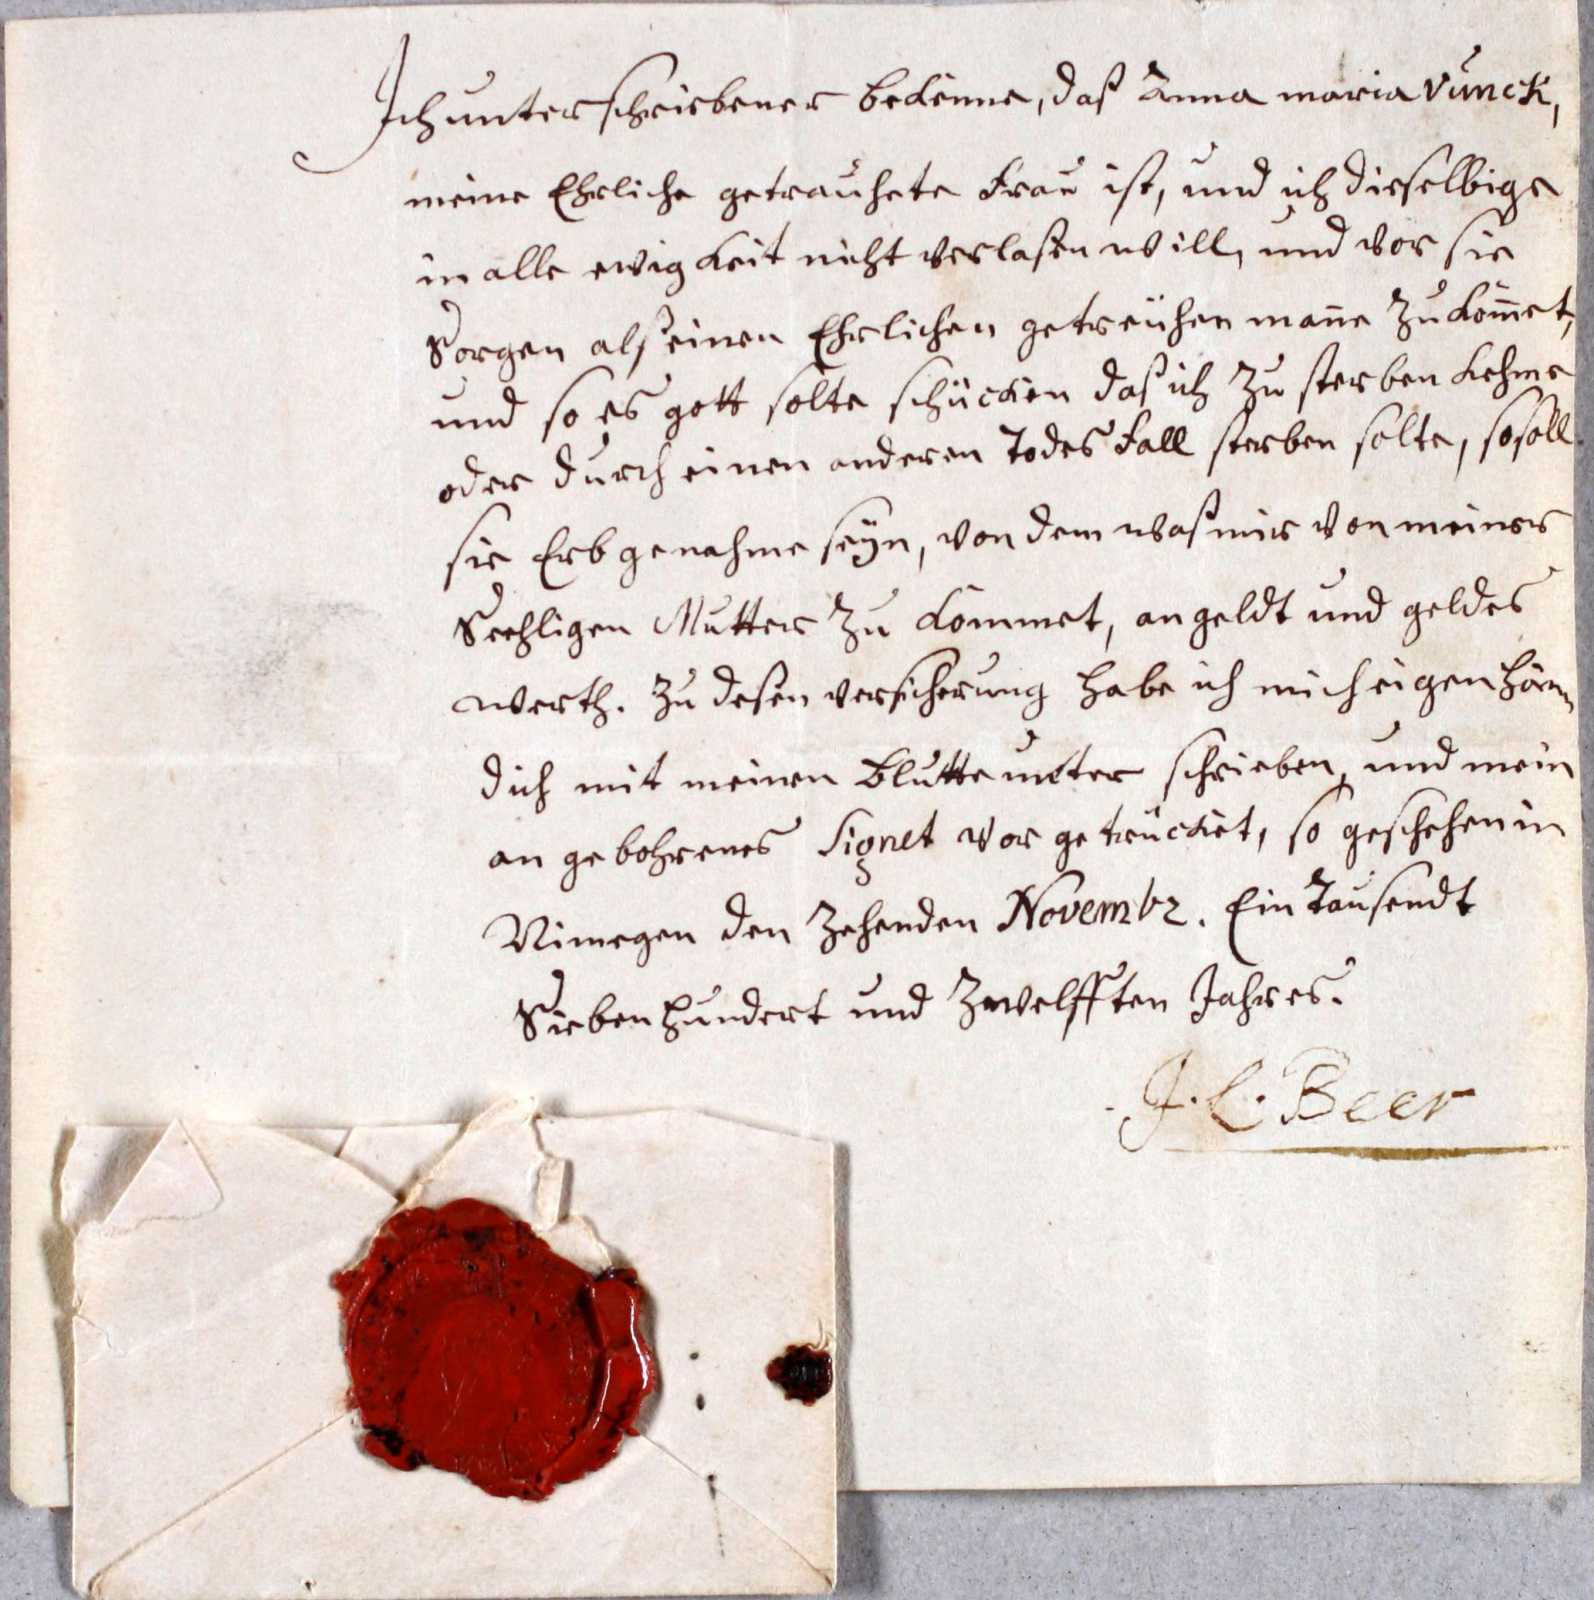 Ich unterschriebener bekenne, daß Anna maria Vunck,
meine Ehrliche getrauhete Frau ist, und ich dieselbige
in alle ewigkeit nicht verlaßen will, und vor sie
Sorgen alß einen Ehrlichen getreühen mañe zu kom̃et,
und so es gott solte schücken daß ich zu sterben kehme
oder durch einen anderen Todes Fall sterben solte, so soll
sie Erbgenahme seÿn, von dem waß mir von meiner
Seehligen Mutter zu kommet, an geldt und geldes
werth. zu deßen versicherung habe ich mich eigen hän
dich mit meinen Blutte unter schrieben, und mein
an gebohrenes Signet vor getrücket, so geschehen in
Nimegen den Zehenden Novembr. Ein Tausendt
Sieben hundert und Zwelfften Jahres.
J. C. Beer